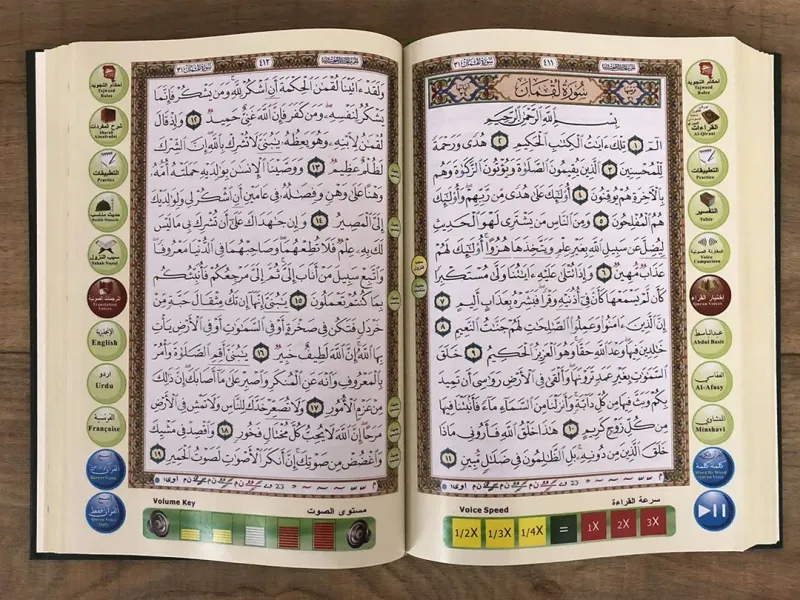 سورة لقمان ٣١
٤١١
سُورَةُ لُقْمَان
بِسْمِ اللَّهِ الرَّحْمَٰنِ الرَّحِيمِ
الٓمٓ ١ تِلْكَ ءَايَٰتُ ٱلْكِتَٰبِ ٱلْحَكِيمِ ٢ هُدًى وَرَحْمَةً
لِّلْمُحْسِنِينَ ٣ ٱلَّذِينَ يُقِيمُونَ ٱلصَّلَوٰةَ وَيُؤْتُونَ ٱلزَّكَوٰةَ وَهُم
بِٱلْءَاخِرَةِ هُمْ يُوقِنُونَ ٤ أُو۟لَٰٓئِكَ عَلَىٰ هُدًى مِّن رَّبِّهِمْ وَأُو۟لَٰٓئِكَ
هُمُ ٱلْمُفْلِحُونَ ٥ وَمِنَ ٱلنَّاسِ مَن يَشْتَرِى لَهْوَ ٱلْحَدِيثِ
لِيُضِلَّ عَن سَبِيلِ ٱللَّهِ بِغَيْرِ عِلْمٍ وَيَتَّخِذَهَا هُزُوًا أُو۟لَٰٓئِكَ لَهُمْ
عَذَابٌ مُّهِينٌ ٦ وَإِذَا تُتْلَىٰ عَلَيْهِ ءَايَٰتُنَا وَلَّىٰ مُسْتَكْبِرًا
كَأَن لَّمْ يَسْمَعْهَا كَأَنَّ فِىٓ أُذُنَيْهِ وَقْرًا فَبَشِّرْهُ بِعَذَابٍ أَلِيمٍ ٧
إِنَّ ٱلَّذِينَ ءَامَنُوا۟ وَعَمِلُوا۟ ٱلصَّٰلِحَٰتِ لَهُمْ جَنَّٰتُ ٱلنَّعِيمِ ٨
خَٰلِدِينَ فِيهَا وَعْدَ ٱللَّهِ حَقًّا وَهُوَ ٱلْعَزِيزُ ٱلْحَكِيمُ ٩ خَلَقَ
ٱلسَّمَٰوَٰتِ بِغَيْرِ عَمَدٍ تَرَوْنَهَا وَأَلْقَىٰ فِى ٱلْأَرْضِ رَوَٰسِىَ أَن تَمِيدَ
بِكُمْ وَبَثَّ فِيهَا مِن كُلِّ دَآبَّةٍ وَأَنزَلْنَا مِنَ ٱلسَّمَآءِ مَآءً فَأَنۢبَتْنَا فِيهَا
مِن كُلِّ زَوْجٍ كَرِيمٍ ١٠ هَٰذَا خَلْقُ ٱللَّهِ فَأَرُونِى مَاذَا
خَلَقَ ٱلَّذِينَ مِن دُونِهِۦ بَلِ ٱلظَّٰلِمُونَ فِى ضَلَٰلٍ مُّبِينٍ ١١
أحكام التجويد
Tajweed Rules
القراءات
Al-Qiraat
التطبيقات
Practice
التفسير
Tafsir
المقارنة الصوتية
Voice Comparison
اختيار القراء
Quran Voices
عبدالباسط
Abdul Basit
العفاسي
Al-Afasy
المنشاوي
Minshavi
كلمة كلمة
Word By Word
سرعة القراءة
Voice Speed
1/2X 1/3X 1/4X = 1X 2X 3X
سورة لقمان ٣١
٤١٢
وَلَقَدْ ءَاتَيْنَا لُقْمَٰنَ ٱلْحِكْمَةَ أَنِ ٱشْكُرْ لِلَّهِ وَمَن يَشْكُرْ فَإِنَّمَا
يَشْكُرُ لِنَفْسِهِۦ وَمَن كَفَرَ فَإِنَّ ٱللَّهَ غَنِىٌّ حَمِيدٌ ١٢ وَإِذْ قَالَ
لُقْمَٰنُ لِٱبْنِهِۦ وَهُوَ يَعِظُهُۥ يَٰبُنَىَّ لَا تُشْرِكْ بِٱللَّهِ إِنَّ ٱلشِّرْكَ
لَظُلْمٌ عَظِيمٌ ١٣ وَوَصَّيْنَا ٱلْإِنسَٰنَ بِوَٰلِدَيْهِ حَمَلَتْهُ أُمُّهُۥ
وَهْنًا عَلَىٰ وَهْنٍ وَفِصَٰلُهُۥ فِى عَامَيْنِ أَنِ ٱشْكُرْ لِى وَلِوَٰلِدَيْكَ
إِلَىَّ ٱلْمَصِيرُ ١٤ وَإِن جَٰهَدَاكَ عَلَىٰٓ أَن تُشْرِكَ بِى مَا لَيْسَ
لَكَ بِهِۦ عِلْمٌ فَلَا تُطِعْهُمَا وَصَاحِبْهُمَا فِى ٱلدُّنْيَا مَعْرُوفًا
وَٱتَّبِعْ سَبِيلَ مَنْ أَنَابَ إِلَىَّ ثُمَّ إِلَىَّ مَرْجِعُكُمْ فَأُنَبِّئُكُم
بِمَا كُنتُمْ تَعْمَلُونَ ١٥ يَٰبُنَىَّ إِنَّهَآ إِن تَكُ مِثْقَالَ حَبَّةٍ مِّنْ
خَرْدَلٍ فَتَكُن فِى صَخْرَةٍ أَوْ فِى ٱلسَّمَٰوَٰتِ أَوْ فِى ٱلْأَرْضِ يَأْتِ
بِهَا ٱللَّهُ إِنَّ ٱللَّهَ لَطِيفٌ خَبِيرٌ ١٦ يَٰبُنَىَّ أَقِمِ ٱلصَّلَوٰةَ وَأْمُرْ
بِٱلْمَعْرُوفِ وَٱنْهَ عَنِ ٱلْمُنكَرِ وَٱصْبِرْ عَلَىٰ مَآ أَصَابَكَ إِنَّ ذَٰلِكَ
مِنْ عَزْمِ ٱلْأُمُورِ ١٧ وَلَا تُصَعِّرْ خَدَّكَ لِلنَّاسِ وَلَا تَمْشِ فِى ٱلْأَرْضِ
مَرَحًا إِنَّ ٱللَّهَ لَا يُحِبُّ كُلَّ مُخْتَالٍ فَخُورٍ ١٨ وَٱقْصِدْ فِى مَشْيِكَ
وَٱغْضُضْ مِن صَوْتِكَ إِنَّ أَنكَرَ ٱلْأَصْوَٰتِ لَصَوْتُ ٱلْحَمِيرِ ١٩
أحكام التجويد
Tajweed Rules
شرح المفردات
التطبيقات
Practice
حديث مناسب
سبب النزول
الترجمات الصوتية
Translation Voices
الإنجليزية
English
اردو
Urdu
الفرنسية
Française
Volume Key
مستوى الصوت